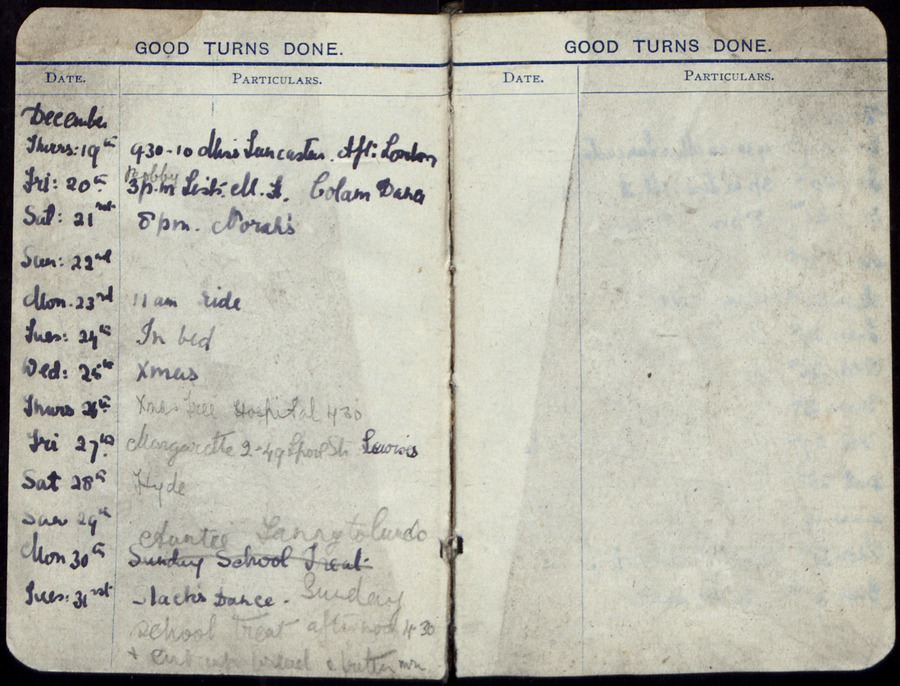 GOOD TURNS DONE.
DATE. PARTICULARS.
December
Thurs: 19th 930-10 Miss Lancaster. Aft: London
Nobby
Fri: 20th 3p.m List: M. H. Colam Dance
Sat: 21st 8 pm. Norah's
Sun: 22nd
Mon. 23rd 11 am ride
Tues: 24th In bed
Wed: 25th Xmas
Thurs 26th Xmas Tree Hospital 430
Fri 27th Margarette 2-49 Lpool St: Lewises
Sat 28th Hyde
Sun 29th
Auntie Fanny to
Mon 30th Sunday School Treat
Tues: 31st Dance. Sunday
school treat afternoon 4 30
+ cut up bread & butter
GOOD TURNS DONE.
DATE. PARTICULARS.